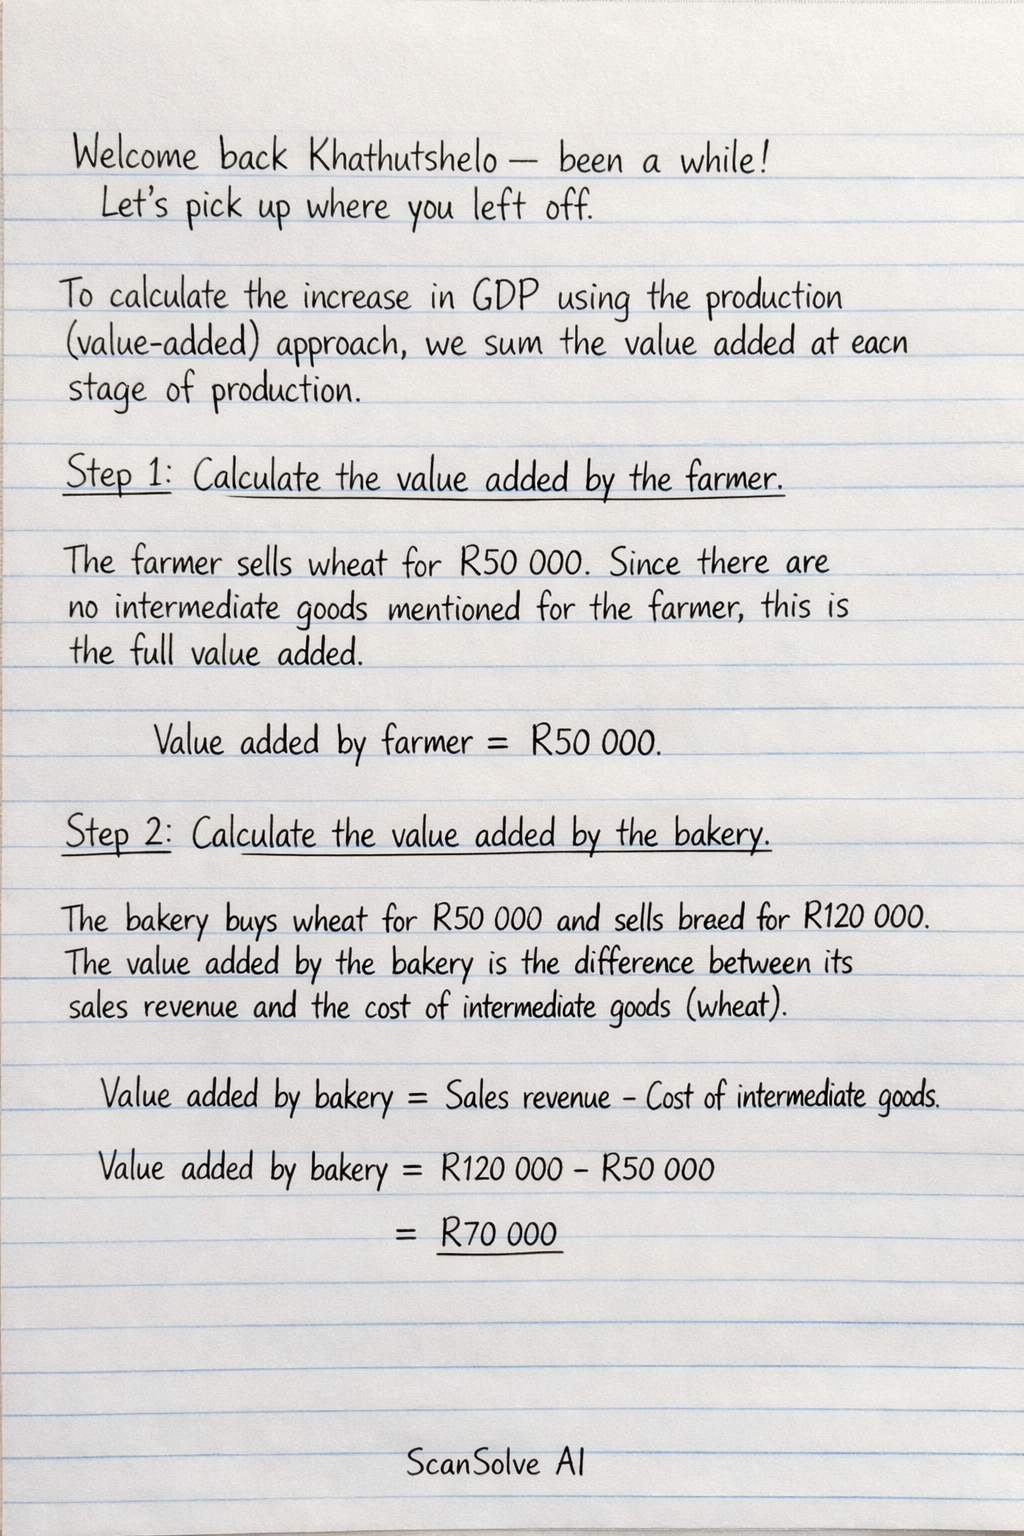 Welcome back Khathutshelo — been a while!
Let's pick up where you left off.
To calculate the increase in GDP using the production
(value-added) approach, we sum the value added at eacn
stage of production.
Step 1: Calculate the value added by the farmer.
The farmer sells wheat for R50 000. Since there are
no intermediate goods mentioned for the farmer, this is
the full value added.
Value added by farmer = R50 000.
Step 2: Calculate the value added by the bakery.
The bakery buys wheat for R50 000 and sells breed for R120 000.
The value added by the bakery is the difference between its
sales revenue and the cost of intermediate goods (wheat).
Value added by bakery = Sales revenue – Cost of intermediate goods.
Value added by bakery = R120 000 – R50 000
= R70 000
ScanSolve AI